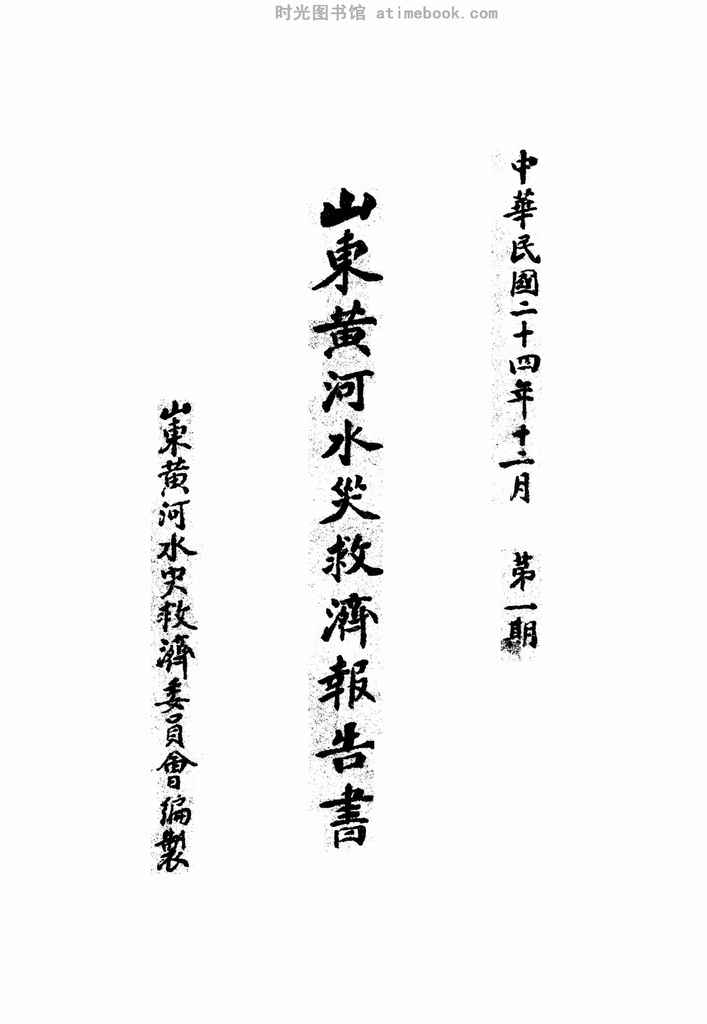 时光图书馆 atimebook.com
中華民國二十四年十二月 第一期
山東黄河水災救濟報告書
山東黄河水灾救濟委員會編製